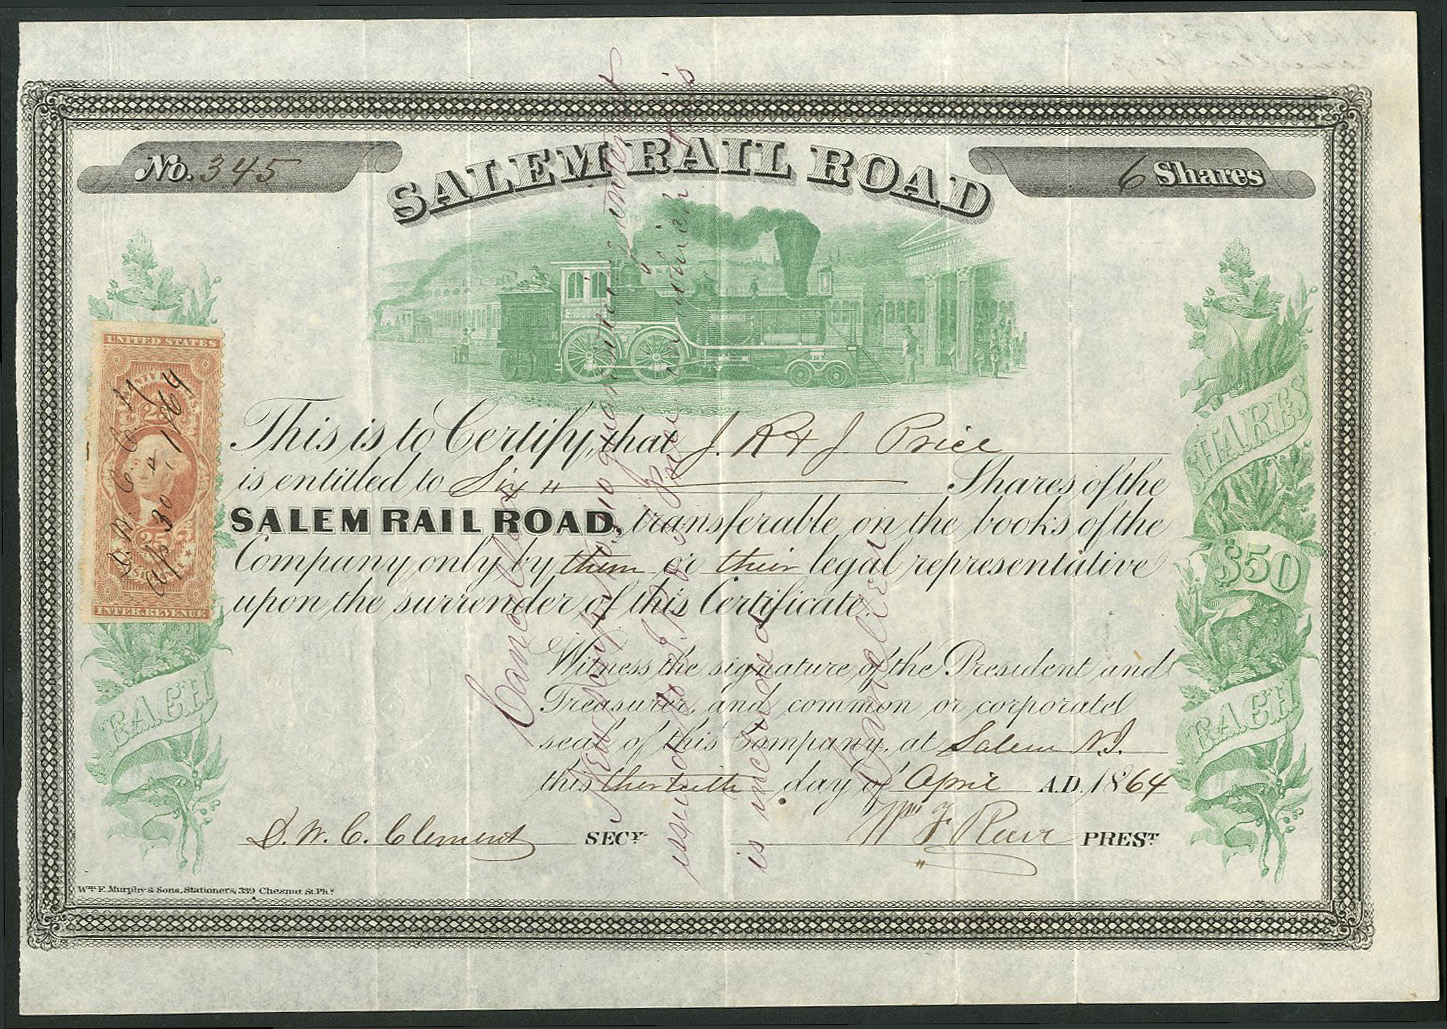 No. 345
SALEM RAIL ROAD
6 Shares
UNITED STATES
25
25
INTER. REVENUE
D. W. C. C.
4/30/64
SHARES
$50
EACH
EACH
This is to Certify, that J. R & J. Price
is entitled to Six " Shares of the
SALEM RAIL ROAD, transferable on the books of the
Company only by them or their legal representative
upon the surrender of this Certificate.
Witness the signature of the President and
Treasurer, and common or corporate
seal of this Company, at Salem N.J.
this thirtieth day of April A.D. 1864
D. W. C. Clement SECY.
Wm F. Reeve PREST
Wm F. Murphy & Sons, Stationers, 339 Chesnut St. Pha
Cancelled
issued to J. R & J. Price which
is
Cancelled